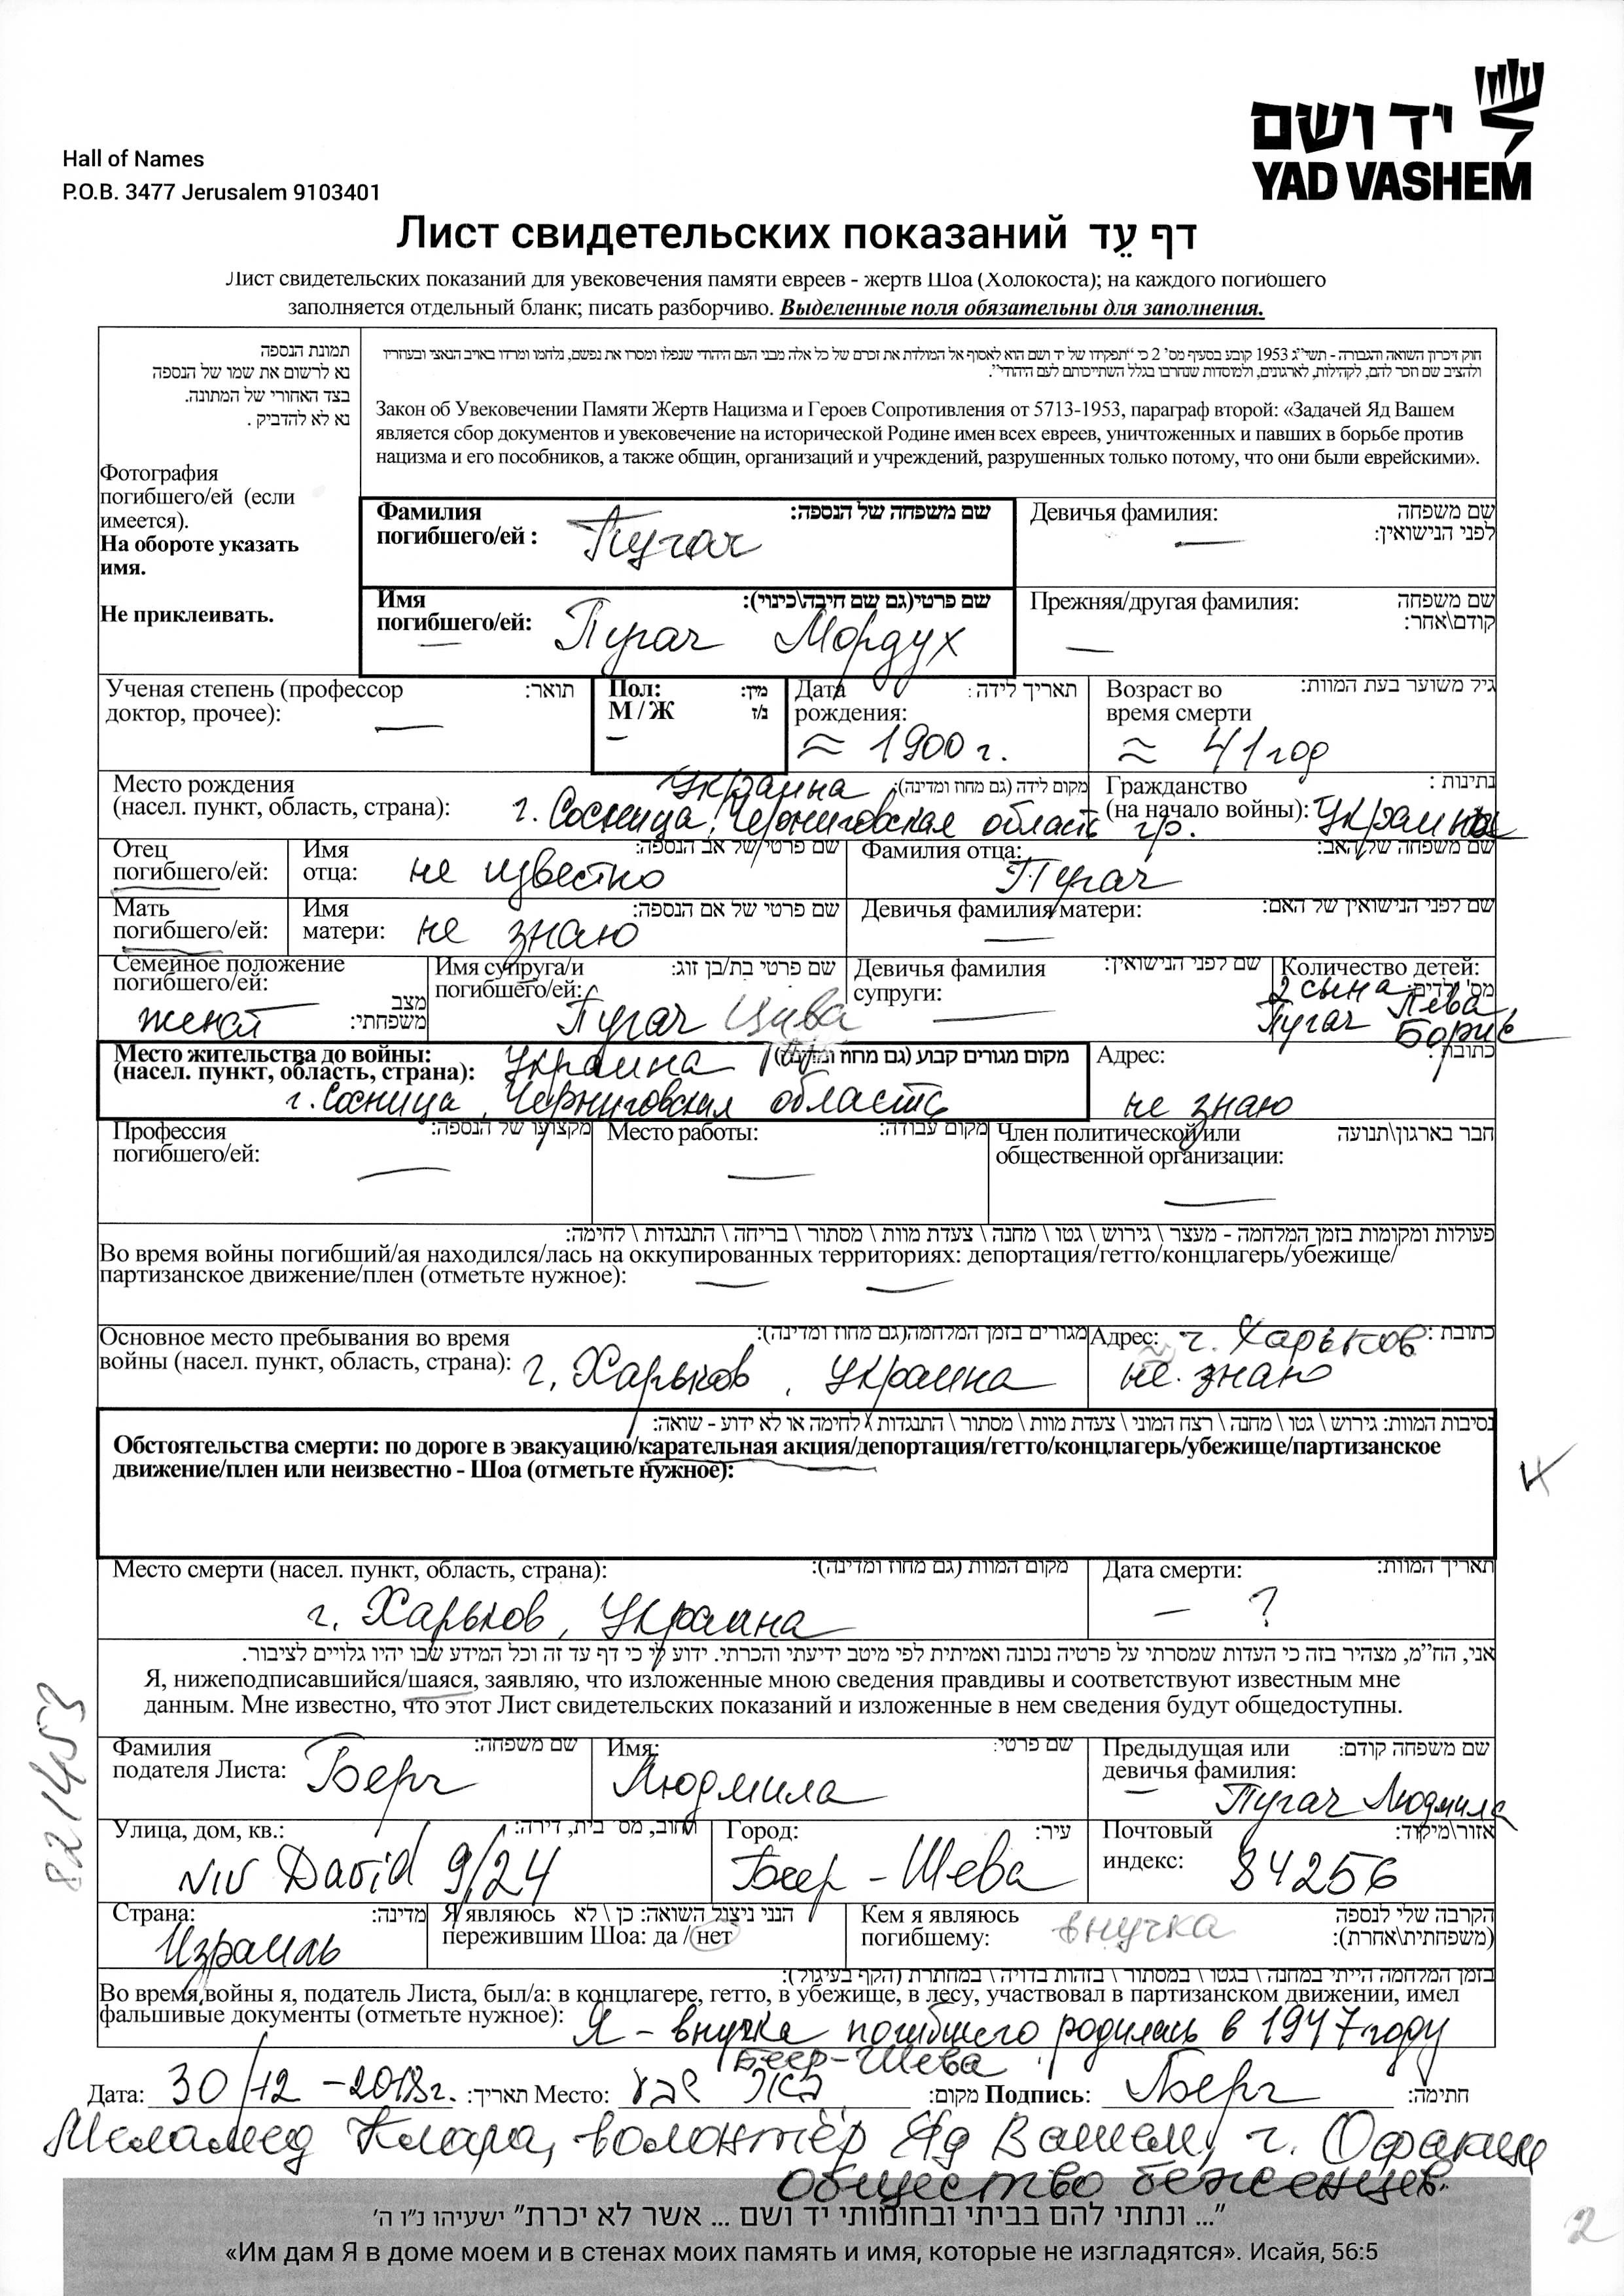 יד ושם
YAD VASHEM
Hall of Names
P.O.B. 3477 Jerusalem 9103401
Лист свидетельских показаний דף עֵד
Лист свидетельских показаний для увековечения памяти евреев - жертв Шоа (Холокоста); на каждого погибшего
заполняется отдельный бланк; писать разборчиво. Выделенные поля обязательны для заполнения.
תמונת הנספה
נא לרשום את שמו של הנספה
בצד האחורי של המתונה.
נא לא להדביק.
Фотография
погибшего/ей (если
имеется).
На обороте указать
имя.
Не приклеивать.
חוק זיכרון השואה והגבורה - תשי"ג 1953 קובע בסעיף מס' 2 כי "תפקידו של יד ושם הוא לאסוף אל המולדת את זכרם של כל אלה מבני העם היהודי שנפלו ומסרו את נפשם, נלחמו ומרדו באויב הנאצי ובעוזריו
ולהציב שם וזכר להם, לקהילות, לארגונים, ולמוסדות שנחרבו בגלל השתייכותם לעם היהודי".
Закон об Увековечении Памяти Жертв Нацизма и Героев Сопротивления от 5713-1953, параграф второй: «Задачей Яд Вашем
является сбор документов и увековечение на исторической Родине имен всех евреев, уничтоженных и павших в борьбе против
нацизма и его пособников, а также общин, организаций и учреждений, разрушенных только потому, что они были еврейскими».
Фамилия погибшего/ей : שם משפחה של הנספה: Пугач
Девичья фамилия: שם משפחה לפני הנישואין: —
Имя погибшего/ей: שם פרטי(גם שם חיבה\כינוי): — Пугач Мордух
Прежняя/другая фамилия: שם משפחה קודם\אחר: —
Ученая степень (профессор доктор, прочее): תואר: —
Пол: М / Ж מין: ז/נ
Дата рождения: תאריך לידה: ≈ 1900 г.
Возраст во время смерти גיל משוער בעת המוות: ≈ 41 год
Место рождения (насел. пункт, область, страна): מקום לידה (גם מחוז ומדינה): Украина
г. Сосница, Черниговская область
Гражданство (на начало войны): נתינות: гр. Украины
Отец погибшего/ей: Имя отца: שם פרטי של אב הנספה: не известно
Фамилия отца: שם משפחה של האב: Пугач
Мать погибшего/ей: Имя матери: שם פרטי של אם הנספה: не знаю
Девичья фамилия матери: שם לפני הנישואין של האם: —
Семейное положение погибшего/ей: מצב משפחתי: женат
Имя супруга/и погибшего/ей: שם פרטי בת/בן זוג: Пугач Цива
Девичья фамилия супруги: שם לפני הנישואין: —
Количество детей: מס' ילדים: 2 сына Лева
Пугач Борис
Место жительства до войны: (насел. пункт, область, страна): מקום מגורים קבוע (גם מחוז ומדינה): Украина
г. Сосница, Черниговская область
Адрес: כתובת: не знаю
Профессия погибшего/ей: מקצועו של הנספה: —
Место работы: מקום עבודה: —
Член политической/или общественной организации: חבר בארגון\תנועה —
פעולות ומקומות בזמן המלחמה - מעצר \ גירוש \ גטו \ מחנה \ צעדת מוות \ מסתור \ בריחה \ התנגדות \ לחימה:
Во время войны погибший/ая находился/лась на оккупированных территориях: депортация/гетто/концлагерь/убежище/
партизанское движение/плен (отметьте нужное): — —
Основное место пребывания во время войны (насел. пункт, область, страна): מגורים בזמן המלחמה(גם מחוז ומדינה): г. Харьков, Украина
Адрес: כתובת: г. Харьков
не знаю
נסיבות המוות: גירוש \ גטו \ מחנה \ רצח המוני \ צעדת מוות \ מסתור \ התנגדות \ לחימה או לא ידוע - שואה:
Обстоятельства смерти: по дороге в эвакуацию/карательная акция/депортация/гетто/концлагерь/убежище/партизанское
движение/плен или неизвестно - Шоа (отметьте нужное):
Место смерти (насел. пункт, область, страна): מקום המוות (גם מחוז ומדינה): г. Харьков, Украина
Дата смерти: תאריך המוות: — ?
אני, החי"מ, מצהיר בזה כי העדות שמסרתי על פרטיה נכונה ואמיתית לפי מיטב ידיעתי והכרתי. ידוע לי כי דף עד זה וכל המידע שבו יהיו גלויים לציבור.
Я, нижеподписавшийся/шаяся, заявляю, что изложенные мною сведения правдивы и соответствуют известным мне
данным. Мне известно, что этот Лист свидетельских показаний и изложенные в нем сведения будут общедоступны.
Фамилия подателя Листа: שם משפחה: Берг
Имя: שם פרטי: Людмила
Предыдущая или девичья фамилия: שם משפחה קודם: — Пугач Людмила
Улица, дом, кв.: רחוב, מס' בית, דירה: Niv David 9/24
Город: עיר: Беер-Шева
Почтовый индекс: אזור\מיקוד: 84256
Страна: מדינה: Израиль
Я являюсь пережившим Шоа: да / нет הנני ניצול השואה: כן \ לא
Кем я являюсь погибшему: הקרבה שלי לנספה (משפחתית\אחרת): внучка
בזמן המלחמה הייתי במחנה \ בגטו \ במסתור \ בזהות בדויה \ במחתרת (הקף בעיגול):
Во время войны я, податель Листа, был/а: в концлагере, гетто, в убежище, в лесу, участвовал в партизанском движении, имел
фальшивые документы (отметьте нужное): Я - внучка погибшего родилась в 1947 году
Беер-Шева
Дата: 30/12 - 2018г. תאריך: Место: באר שבע מקום: Подпись: Берг חתימה:
Меламед Клара, волонтёр Яд Вашем, г. Офаким
общество беженцев.
"... ונתתי להם בביתי ובחומותי יד ושם ... אשר לא יכרת" ישעיהו נ"ו ה'
«Им дам Я в доме моем и в стенах моих память и имя, которые не изгладятся». Исайя, 56:5
821453
2